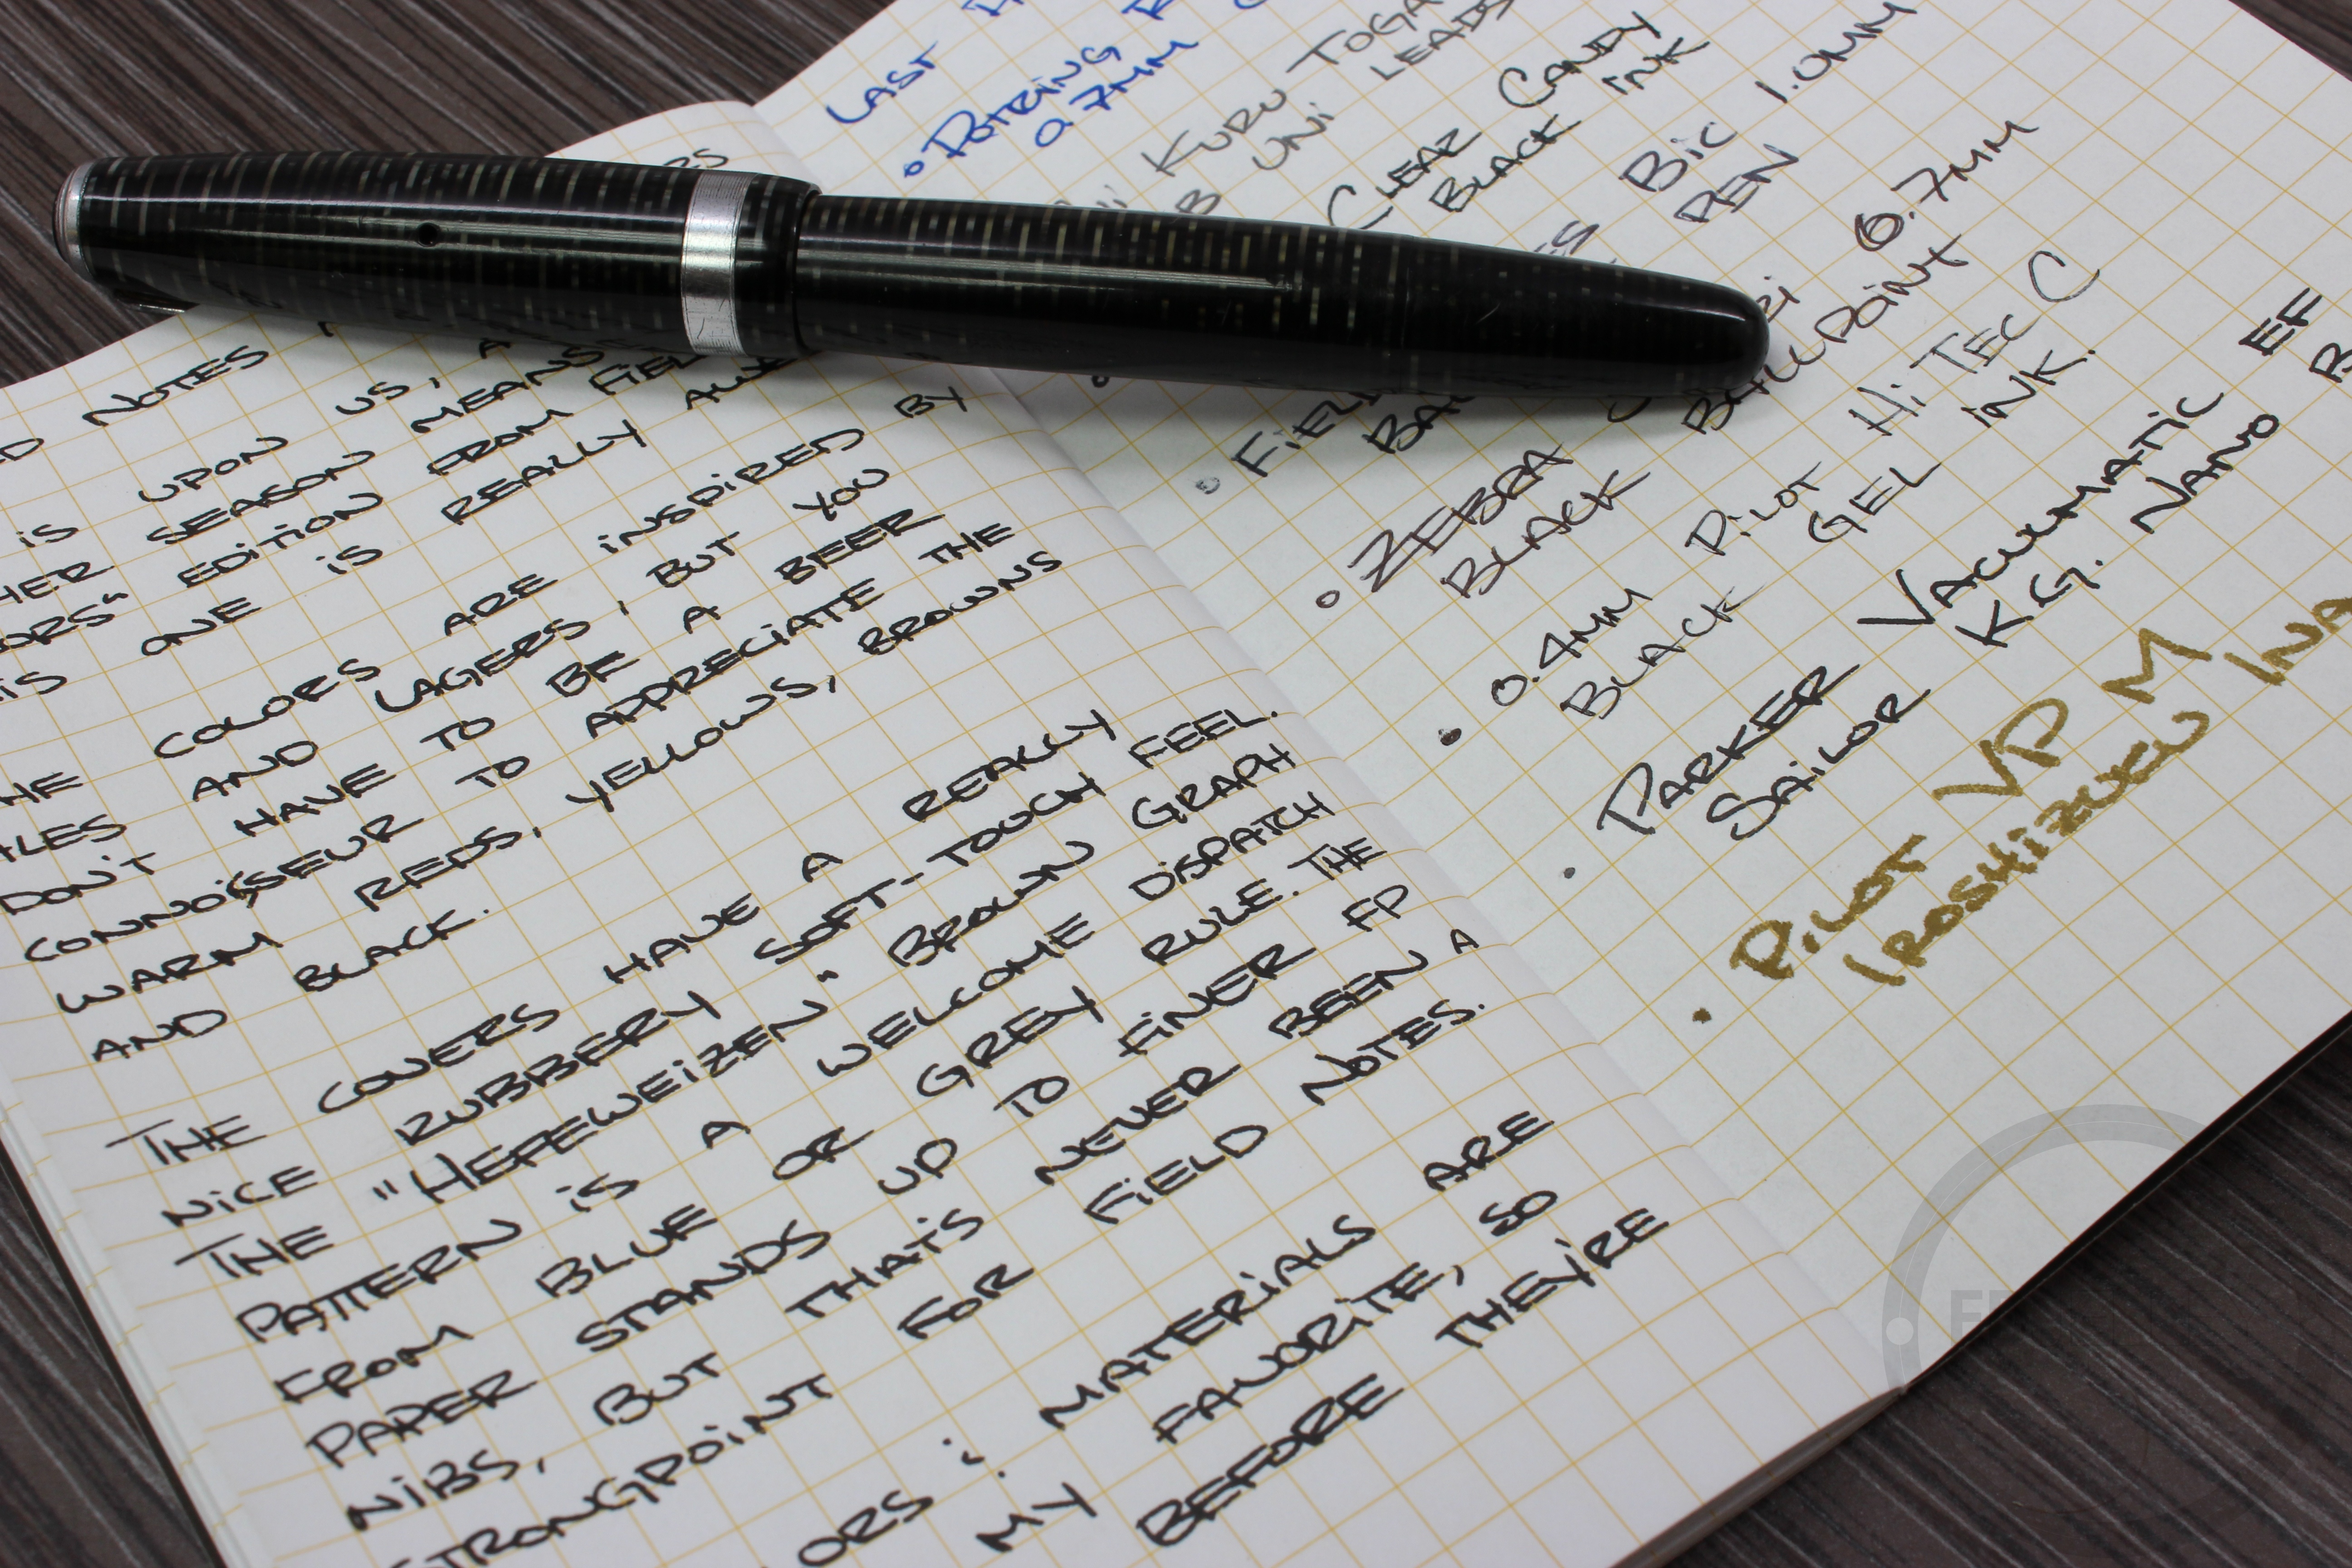 NOTES
IS UPON US,
SEASON MEANS
EDITION FROM
ONE IS REALLY
COLORS ARE INSPIRED BY
AND LAGERS, BUT YOU
DON'T HAVE TO BE A BEER
CONNOISSEUR TO APPRECIATE THE
WARM REDS, YELLOWS, BROWNS
AND BLACK.
THE COVERS HAVE A REALLY
NICE RUBBERY SOFT-TOUCH FEEL.
THE "HEFEWEIZEN" BROWN GRAPH
PATTERN IS A WELCOME DISPATCH
FROM BLUE OR GREY RULE. THE
PAPER STANDS UP TO FINER FP
NIBS, BUT THATS NEVER BEEN A
STRONGPOINT FOR FIELD NOTES.
MATERIALS ARE
MY FAVORITE, SO
BEFORE THEY'RE
LAST
• ROTRING
0.7MM
KURU TOGA
UNI LEADS
CLEAR CANDY
BLACK INK
BIC 1.0MM
PEN
• ZEBRA 0.7MM
BLACK BALLPOINT
• 0.4MM PILOT HI TEC C
BLACK GEL INK.
• PARKER VACUMATIC EF
SAILOR KG. NANO
• PILOT VP M